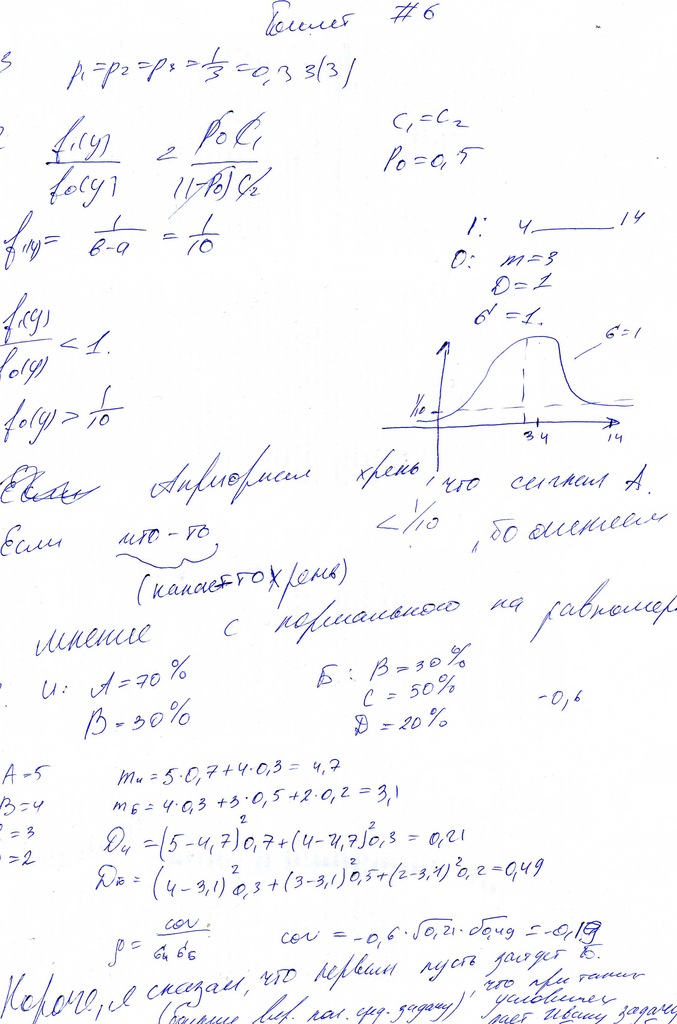 Билет #6
3 p₁=p₂=p₃=1/3=0,33(3)
f₁(y)/f₀(y) ≥ P₀C₁/(1-P₀)C₂
C₁=C₂
P₀=0,5
f₁(y)= 1/(в-а) = 1/10
1: 4 — 14
0: m=3
D=1
σ=1.
f₁(y)/f₀(y) < 1.
σ=1
f₀(y) > 1/10
1/10
3 4 14
Априорная хрень, что сигнал А.
Если что-то < 1/10
(какая-то хрень)
мнение с нормального на равномер
И: А=70%
В=30%
Б: В=30%
С=50%
D=20%
-0,6
А=5
В=4
=3
=2
mи = 5·0,7+4·0,3 = 4,7
mБ = 4·0,3+3·0,5+2·0,2 = 3,1
Dи = (5-4,7)²0,7+(4-4,7)²0,3 = 0,21
DБ = (4-3,1)²0,3+(3-3,1)²0,5+(2-3,1)²0,2=0,49
ρ = cov/σиσБ
cov = -0,6·√0,21·√0,49 =
Короче, я сказал, что первым пусть зайдет Б.
что при таких условиях
задачу)
задачу